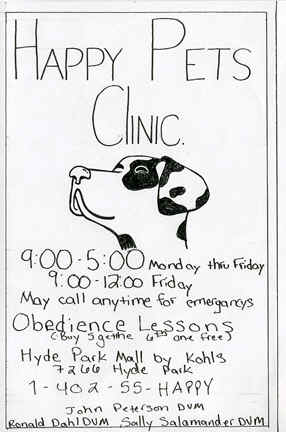 HAPPY PETS
CLINIC.
9:00-5:00 Monday thru Friday
9:00-12:00 Friday
May call anytime for emergancys
Obedience Lessons
(Buy 5 get the 6th one free)
Hyde Park Mall by Kohls
7266 Hyde Park
1-402-55-HAPPY
John Peterson DVM
Ronald Dahl DVM Sally Salamander DVM